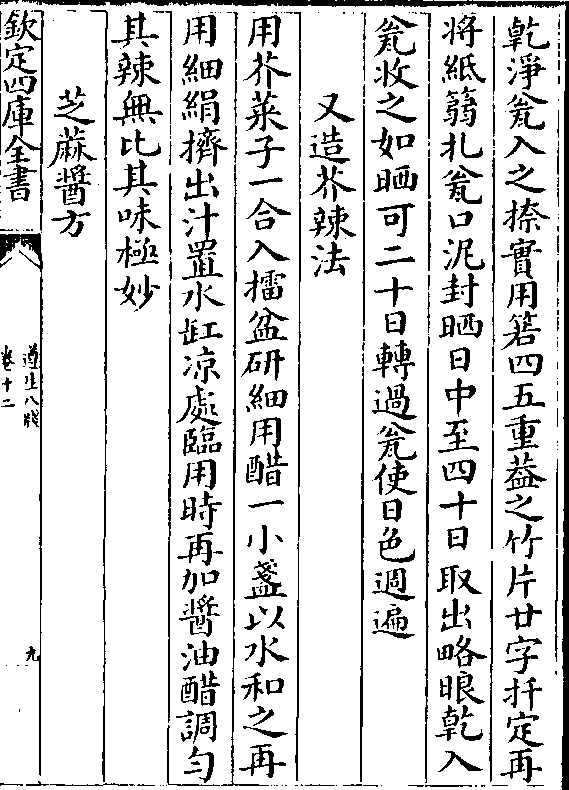 乾淨瓮入之捺實用箬四五重蓋之竹片廿字扦定再
將紙箬扎瓮口泥封晒日中至四十日取出略晾乾入
瓮收之如晒可二十日轉過瓮使日色週遍
又造芥辣法
用芥菜子一合入擂盆研細用醋一小盞以水和之再
用細絹擠出汁置水缸凉處臨用時再加醬油醋調勻
其辣無比其味極妙
芝蔴醬方
欽定四庫全書
遵生八牋
卷十二
九